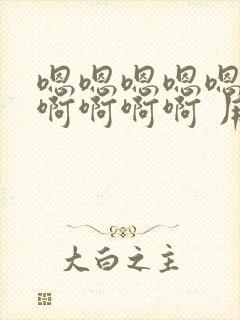 嗯嗯嗯嗯嗯
啊啊啊啊
大白之主